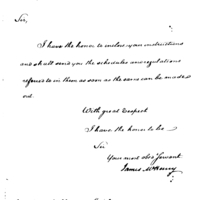 Sir,
I have the honor to inclose your instructions
and shall send you the schedules and regulations
referred to in them as soon as the same can be made
out.
With great respect
I have the honor to be
Sir
Your most obt Servant
James McHenry